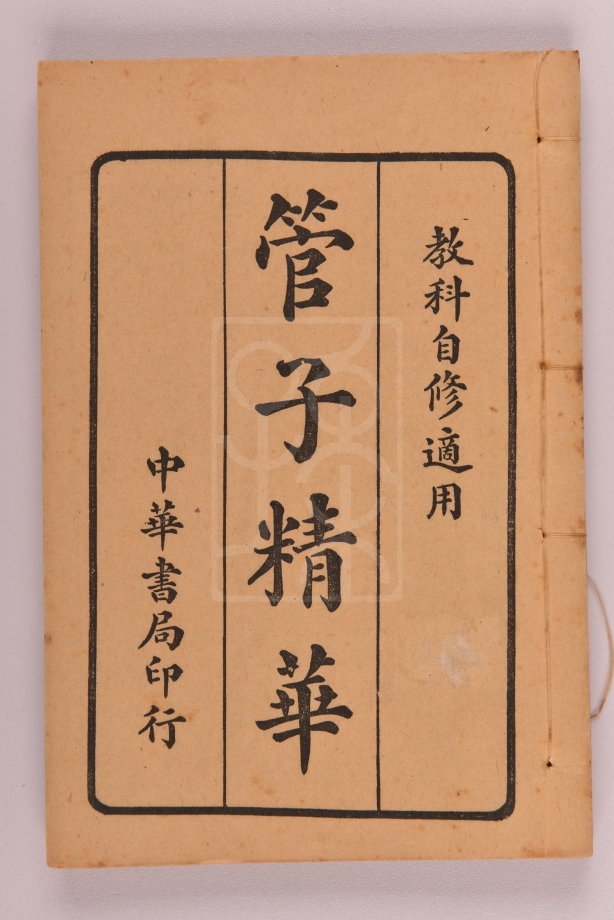 教科自修適用
管子精華
中華書局印行